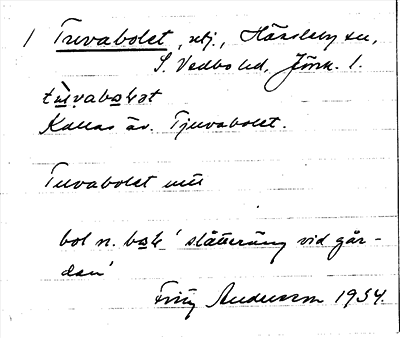 1 Tuvabolet, utj., Hässleby sn,
S. Vedbo hd, Jönk. l.
tùvabolət
Kallas äv. Tjuvabolet.
Tuvabolet utt
bol n. bol 'slåtteräng vid går-
den'
Fritz Andersson 1934.